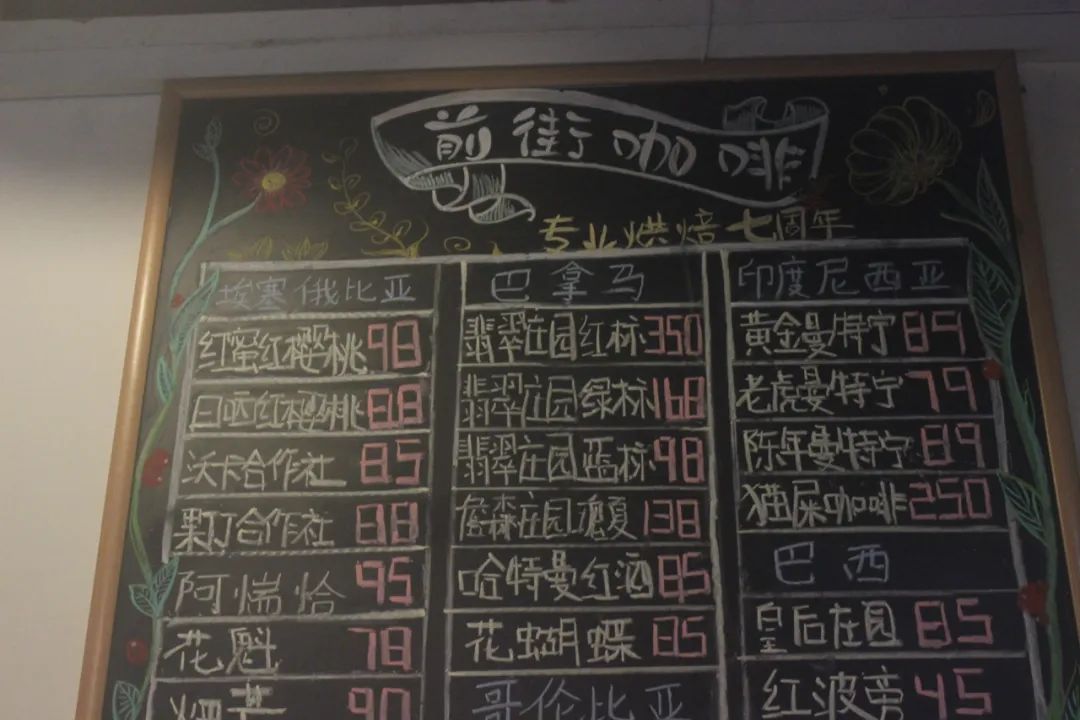 前街咖啡
专业烘焙七周年
埃塞俄比亚
红蜜红樱桃 98
日晒红樱桃 88
沃卡合作社 85
果丁合作社 88
阿惴恰 95
花魁 78
90
巴拿马
翡翠庄园红标 350
翡翠庄园绿标 168
翡翠庄园蓝标 98
詹森庄园瑰夏 138
哈特曼红酒 85
花蝴蝶 85
哥伦比亚
印度尼西亚
黄金曼特宁 89
老虎曼特宁 79
陈年曼特宁 89
猫屎咖啡 250
巴西
皇后庄园 85
红波旁 45